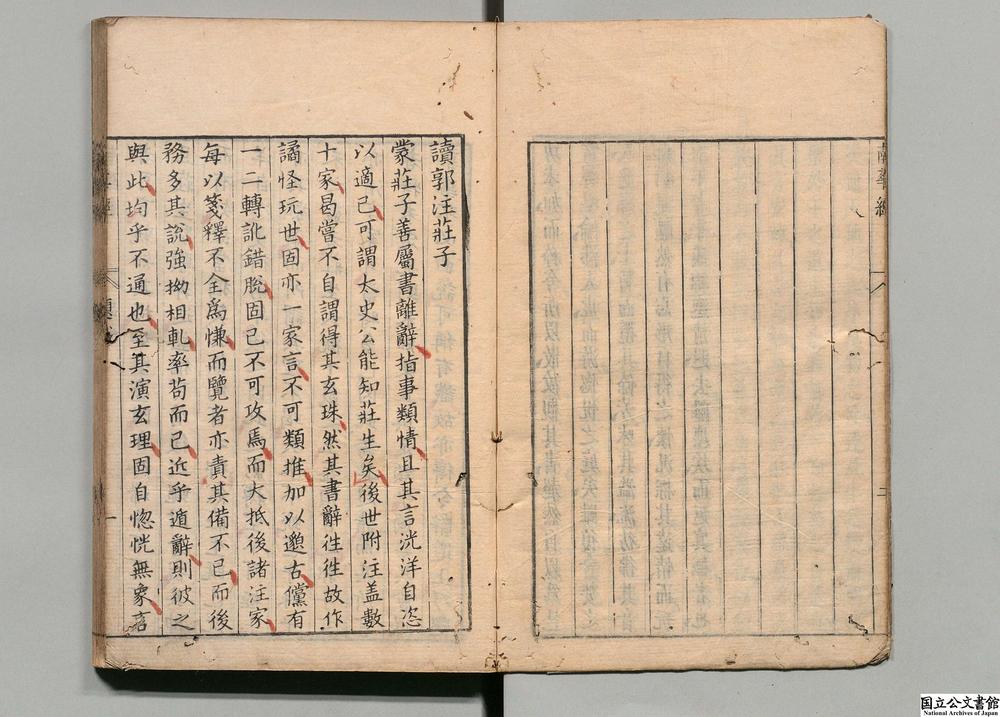 南華經
讀郭注莊子
蒙莊子善屬書離辭指事類情且其言洸洋自恣
以適己可謂太史公能知莊生矣後世附注盖數
十家曷嘗不自謂得其玄珠然其書辭徃徃故作
譎怪玩世固亦一家言不可類推加以邈古儻有
一二轉訛錯脫固已不可攻焉而大抵後諸注家
每以箋釋不全爲慊而覽者亦責其備不已而後
務多其說強拗相軋率苟而已近乎遁辭則彼之
與此均乎不通也至其演玄理固自惚恍無象言
國立公文書館
National Archives of Japan